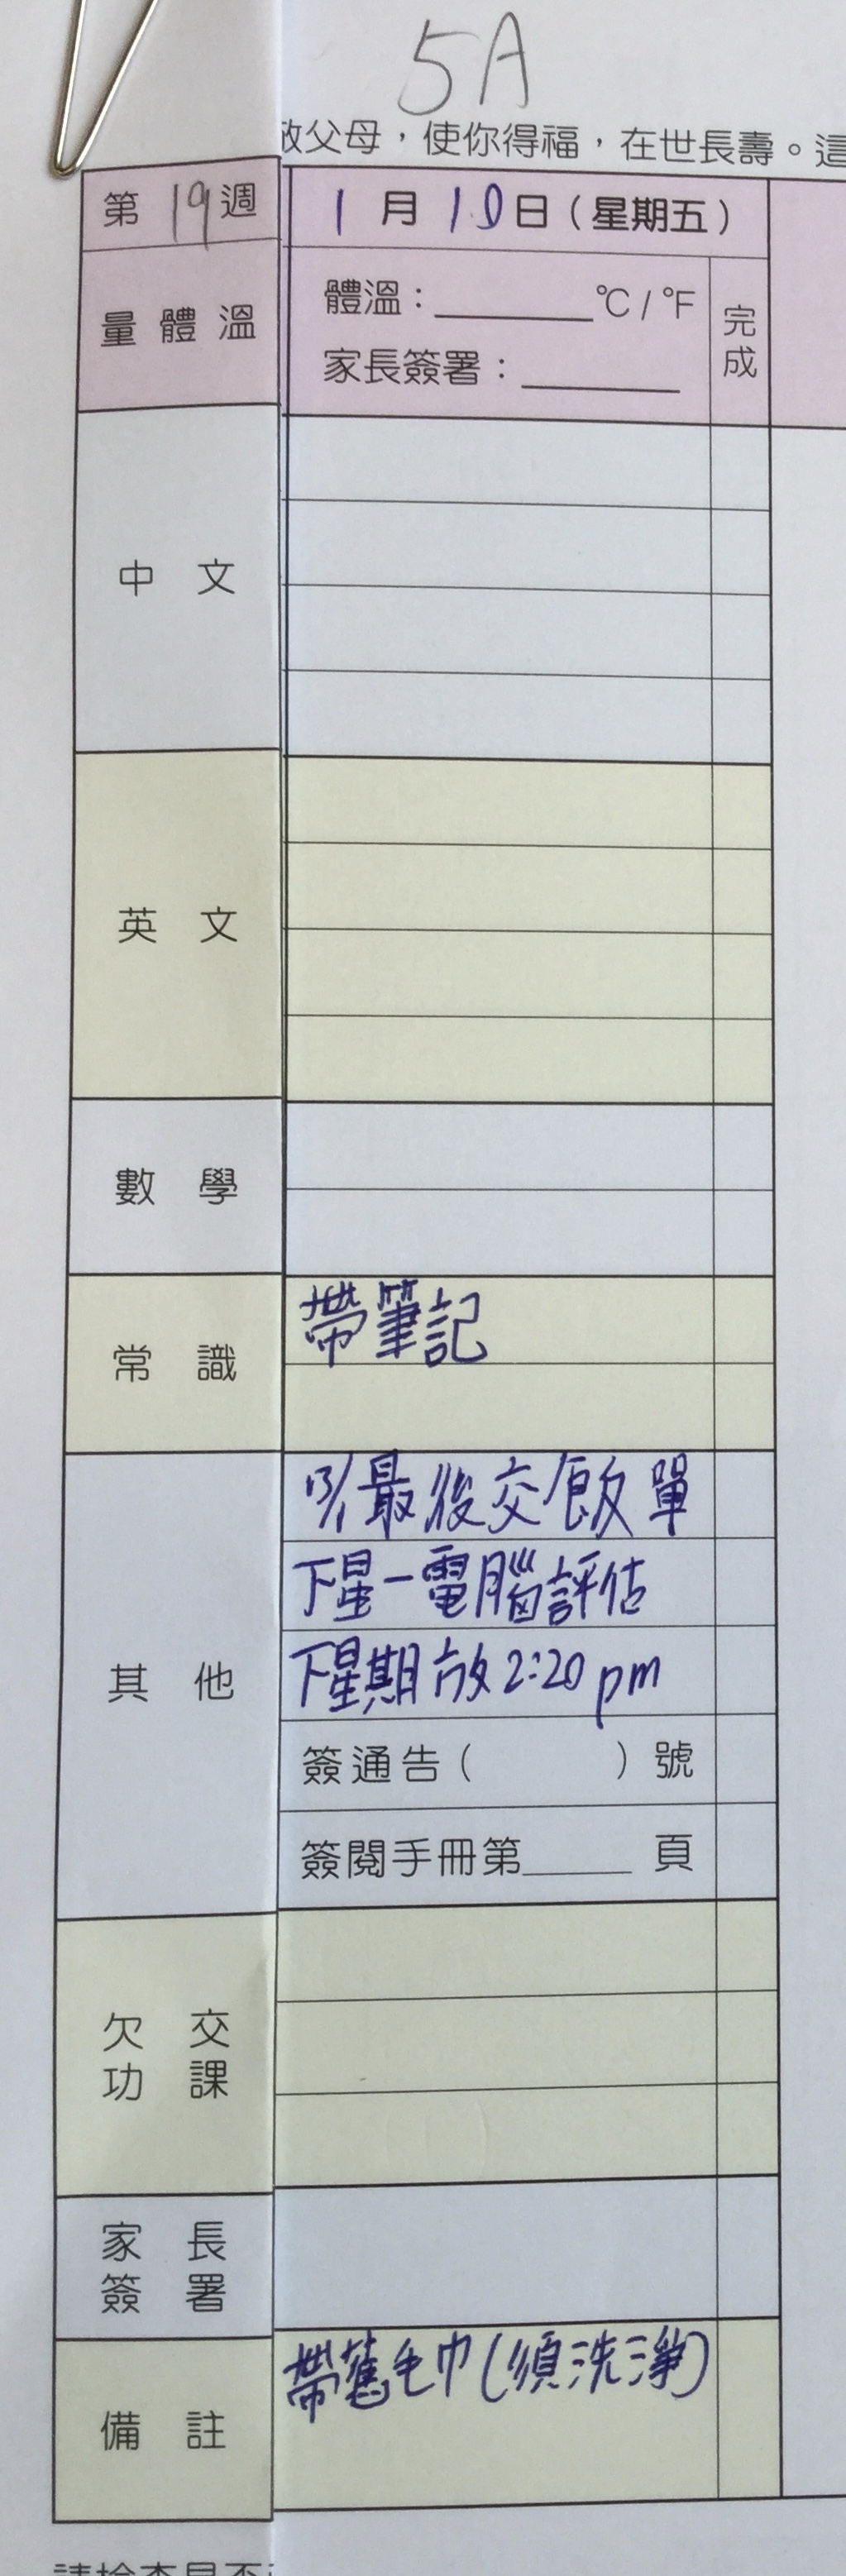 5A
敬父母，使你得福，在世長壽。這
第19週
1月10日（星期五）
量體溫
體溫：______℃/℉
家長簽署：______
完成
中文
英文
數學
常識
帶筆記
其他
13/1最後交飯單
下星一電腦評估
下星期放2:20pm
簽通告（ ）號
簽閱手冊第____頁
欠交功課
家長簽署
備註
帶舊毛巾(須洗淨)